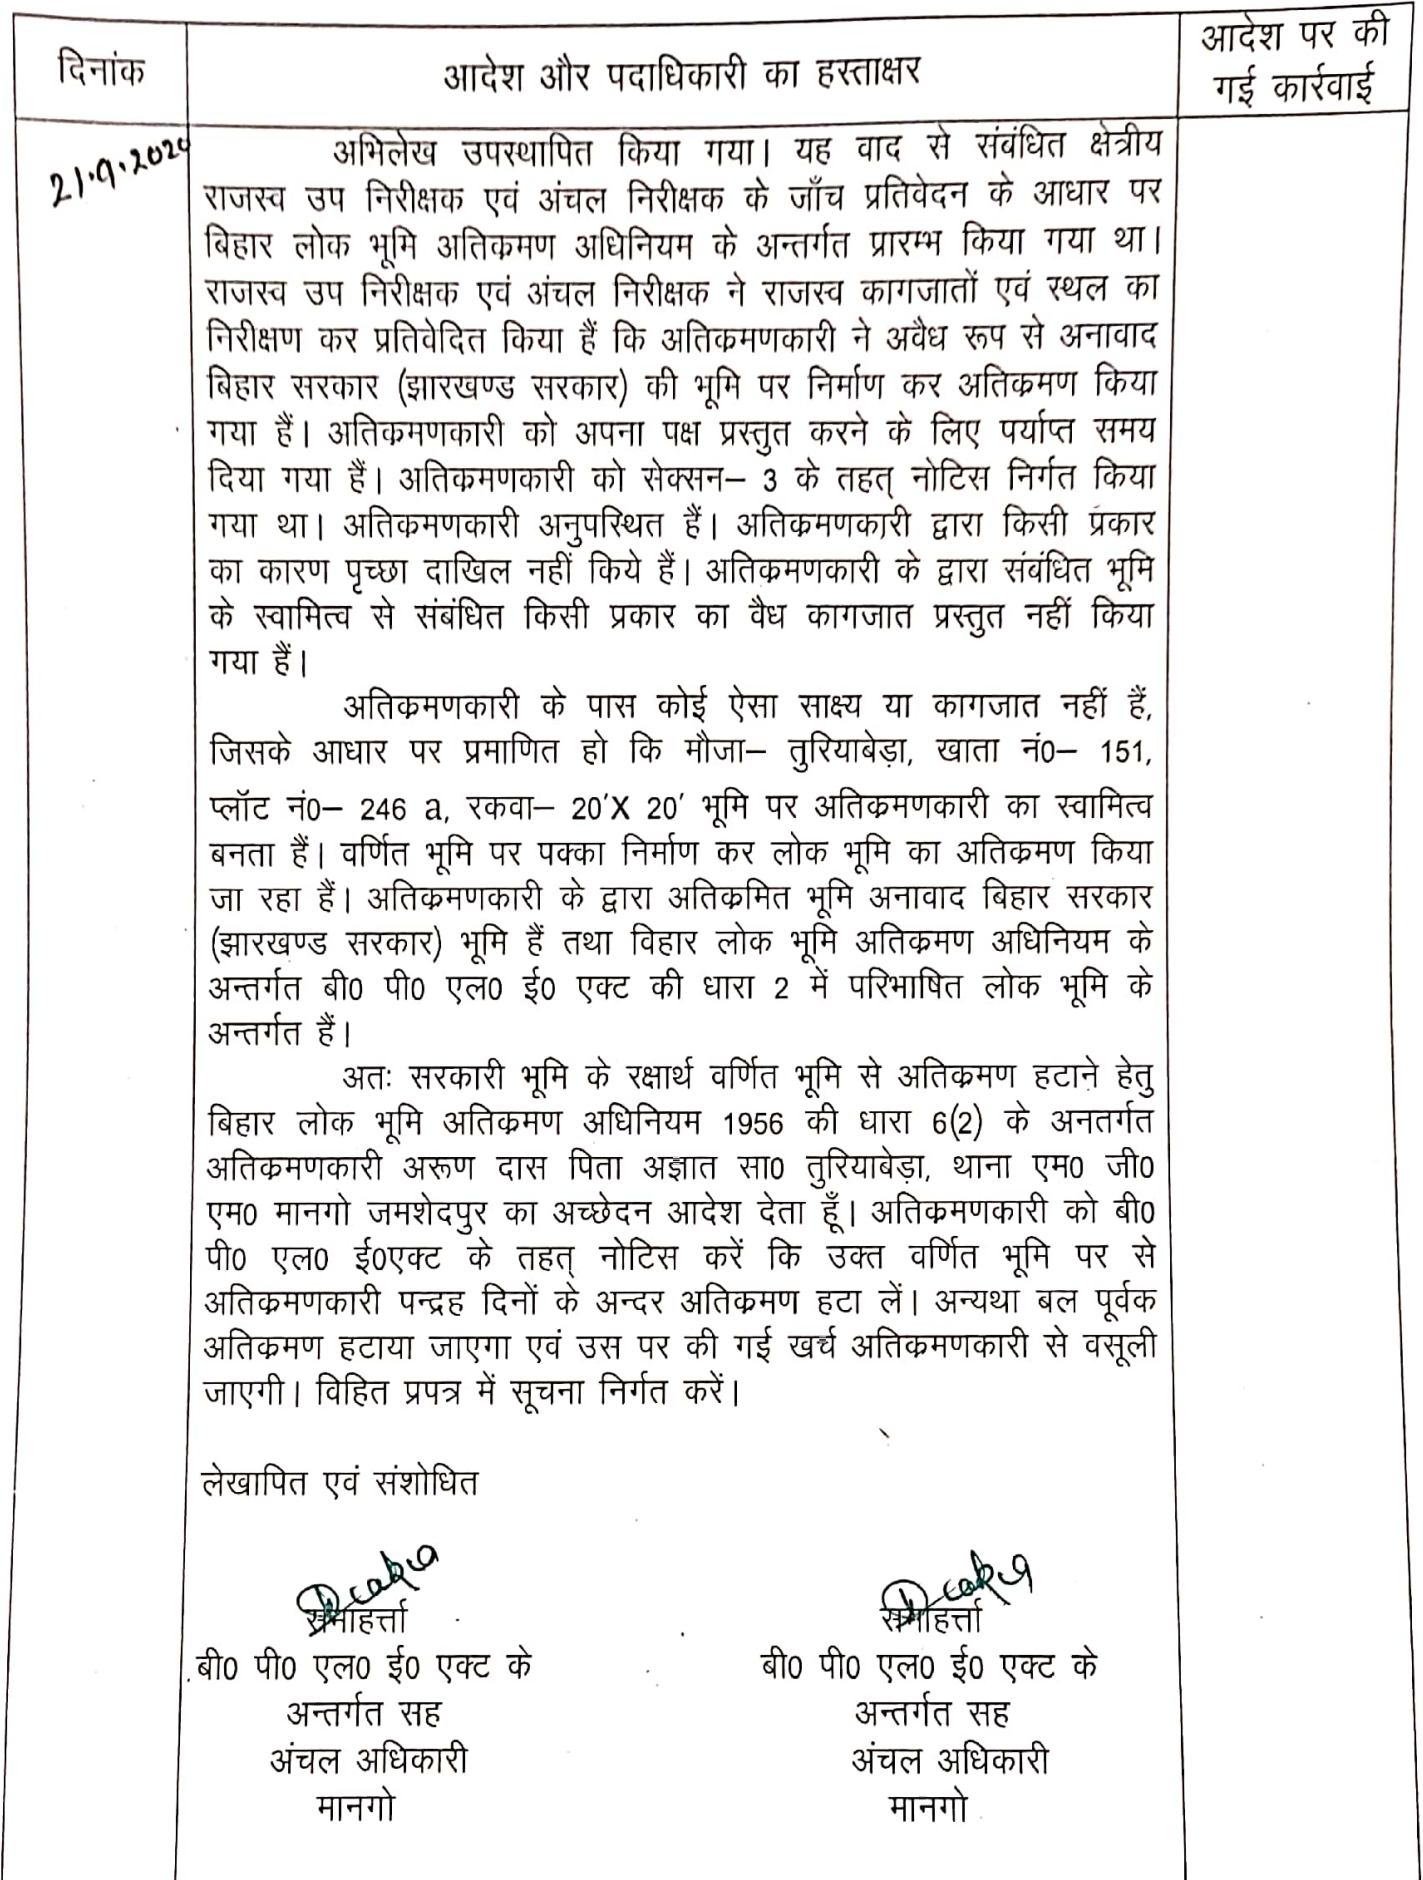 दिनांक
आदेश और पदाधिकारी का हस्ताक्षर
आदेश पर की
गई कार्रवाई
21.9.2020
अभिलेख उपस्थापित किया गया। यह वाद से संबंधित क्षेत्रीय
राजस्व उप निरीक्षक एवं अंचल निरीक्षक के जाँच प्रतिवेदन के आधार पर
बिहार लोक भूमि अतिक्रमण अधिनियम के अन्तर्गत प्रारम्भ किया गया था।
राजस्व उप निरीक्षक एवं अंचल निरीक्षक ने राजस्व कागजातों एवं स्थल का
निरीक्षण कर प्रतिवेदित किया हैं कि अतिक्रमणकारी ने अवैध रूप से अनावाद
बिहार सरकार (झारखण्ड सरकार) की भूमि पर निर्माण कर अतिक्रमण किया
गया हैं। अतिक्रमणकारी को अपना पक्ष प्रस्तुत करने के लिए पर्याप्त समय
दिया गया हैं। अतिक्रमणकारी को सेक्सन– 3 के तहत् नोटिस निर्गत किया
गया था। अतिक्रमणकारी अनुपस्थित हैं। अतिक्रमणकारी द्वारा किसी प्रकार
का कारण पृच्छा दाखिल नहीं किये हैं। अतिक्रमणकारी के द्वारा संबंधित भूमि
के स्वामित्व से संबंधित किसी प्रकार का वैध कागजात प्रस्तुत नहीं किया
गया हैं।
अतिक्रमणकारी के पास कोई ऐसा साक्ष्य या कागजात नहीं हैं,
जिसके आधार पर प्रमाणित हो कि मौजा– तुरियाबेड़ा, खाता नं0– 151,
प्लॉट नं0– 246 a, रकवा– 20'X 20' भूमि पर अतिक्रमणकारी का स्वामित्व
बनता हैं। वर्णित भूमि पर पक्का निर्माण कर लोक भूमि का अतिक्रमण किया
जा रहा हैं। अतिक्रमणकारी के द्वारा अतिक्रमित भूमि अनावाद बिहार सरकार
(झारखण्ड सरकार) भूमि हैं तथा विहार लोक भूमि अतिक्रमण अधिनियम के
अन्तर्गत बी0 पी0 एल0 ई0 एक्ट की धारा 2 में परिभाषित लोक भूमि के
अन्तर्गत हैं।
अतः सरकारी भूमि के रक्षार्थ वर्णित भूमि से अतिक्रमण हटाने हेतु
बिहार लोक भूमि अतिक्रमण अधिनियम 1956 की धारा 6(2) के अनतर्गत
अतिक्रमणकारी अरूण दास पिता अज्ञात सा0 तुरियाबेड़ा, थाना एम0 जी0
एम0 मानगो जमशेदपुर का अच्छेदन आदेश देता हूँ। अतिक्रमणकारी को बी0
पी0 एल0 ई0एक्ट के तहत् नोटिस करें कि उक्त वर्णित भूमि पर से
अतिक्रमणकारी पन्द्रह दिनों के अन्दर अतिक्रमण हटा लें। अन्यथा बल पूर्वक
अतिक्रमण हटाया जाएगा एवं उस पर की गई खर्च अतिक्रमणकारी से वसूली
जाएगी। विहित प्रपत्र में सूचना निर्गत करें।
लेखापित एवं संशोधित
समाहर्त्ता
बी0 पी0 एल0 ई0 एक्ट के
अन्तर्गत सह
अंचल अधिकारी
मानगो
समाहर्त्ता
बी0 पी0 एल0 ई0 एक्ट के
अन्तर्गत सह
अंचल अधिकारी
मानगो